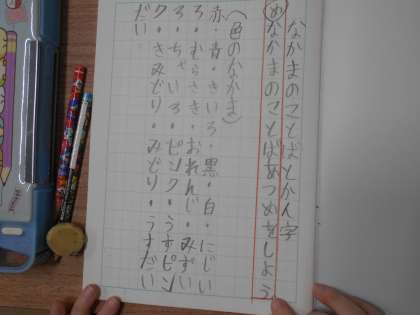 なかまのことばとかん字
めなかまのことばあつめをしよう。
(色のなかま)
赤・青・きいろ・黒・白・にじい
ろ・むらさき・おれんじ・みずい
ろ・ちゃいろ・ピンク・うすピン
ク・きみどり・みどり・うすだい
だい